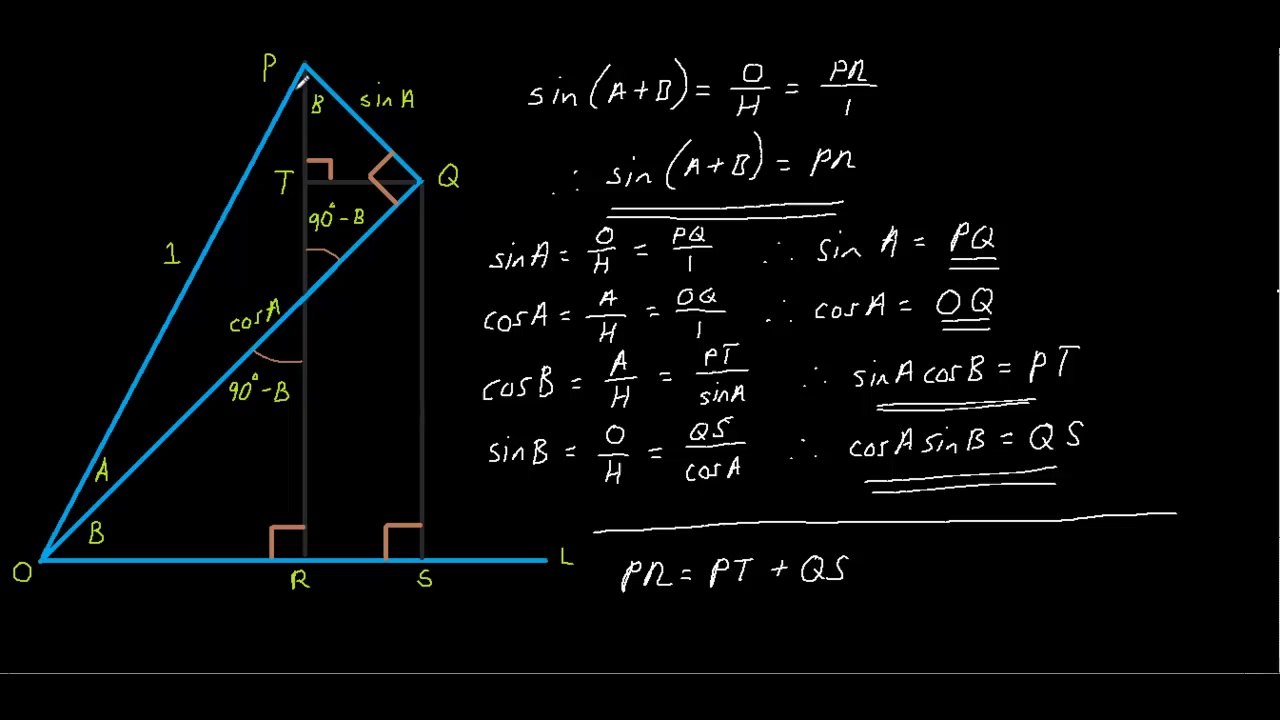 P
B
sin A
T
Q
90° - B
1
cos A
90° - B
A
B
O
R
S
L
sin(A+B) = O/H = PR/1
∴ sin(A+B) = PR
sin A = O/H = PQ/1 ∴ sin A = PQ
cos A = A/H = OQ/1 ∴ cos A = OQ
cos B = A/H = PT/sin A ∴ sin A cos B = PT
sin B = O/H = QS/cos A ∴ cos A sin B = QS
PR = PT + QS